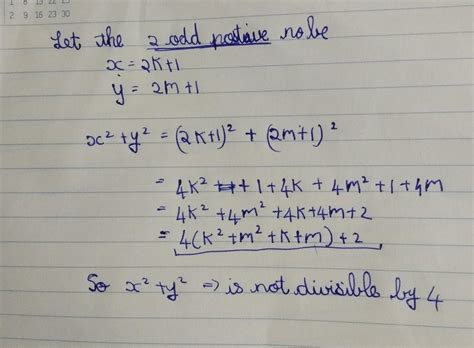 1 8 15 22 29
2 9 16 23 30
Let the 2 odd positive no be
x = 2k+1
y = 2m+1
x² + y² = (2k+1)² + (2m+1)²
= 4k² + 1 + 4k + 4m² + 1 + 4m
= 4k² + 4m² + 4k + 4m + 2
= 4(k² + m² + k + m) + 2
So x² + y² ⇒ is not divisible by 4